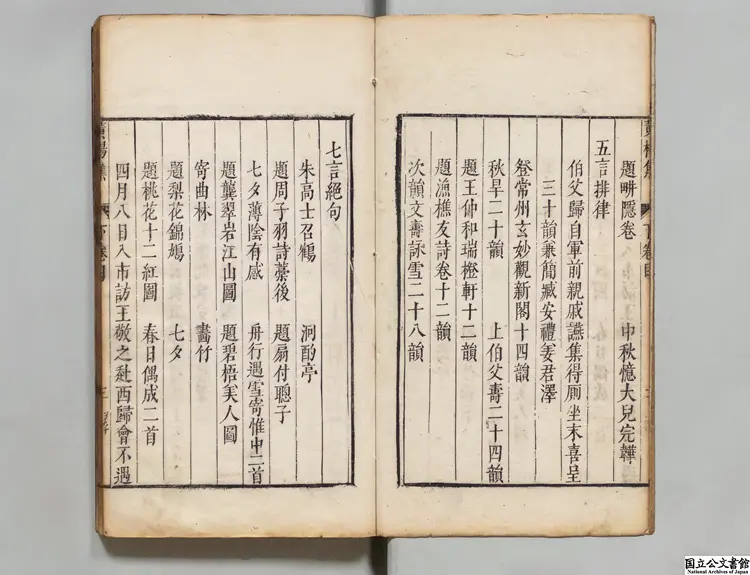 題畊隱卷　中秋憶大兒完韡
五言排律
伯父歸自軍前親戚讌集得厠坐末喜呈
三十韻兼簡臧安禮姜君澤
登常州玄妙觀新閣十四韻
秋旱二十韻　上伯父壽二十四韻
題王仲和瑞橙軒十二韻
題漁樵友詩卷十二韻
次韻文壽詠雪二十八韻
七言絕句
朱高士召鶴　泂酌亭
題周子羽詩藁後　題扇付聰子
七夕薄陰有感　舟行遇雪寄惟中二首
題龔翠岩江山圖　題碧梧美人圖
寄曲林　畫竹
題梨花錦鳩　七夕
題桃花十二紅圖　春日偶成二首
四月八日入市訪王敬之赴西歸會不遇
黃楊集　下卷目
国立公文書館
National Archives of Japan